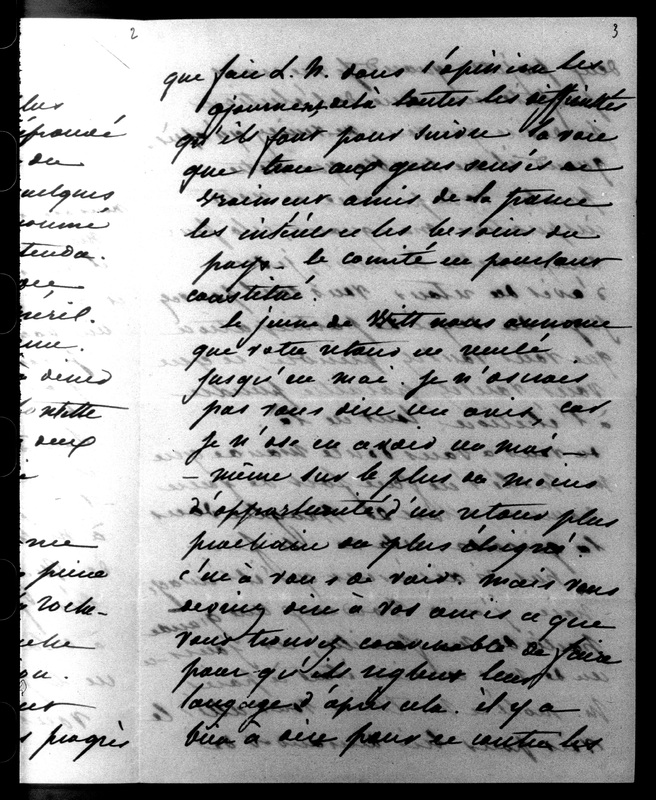 2
3
que fait L. N. dans l'opinion les
ajournent, et à toutes les difficultés
qu'ils font pour suivre la voie
que trace aux gens sensés et
vraiment amis de la france
les intérêts et les besoins du
pays. le comité est pourtant
constitué.
le jeune de Witt nous annonce
que votre retour est
jusqu'en mai. je n'oserais
pas vous dire un avis, car
je n'ose en avoir un moi-
-même sur le plus ou moins
d'opportunité d'un retour plus
prochain ou plus éloigné.
c'est à vous de voir. mais vous
devriez dire à vos amis ce que
vous trouvez convenable de faire
pour qu'ils règlent leur
langage d'après cela. il y a
bien à dire pour et contre les
plus
du
quelques
que
péril.
deux
peine
progrès